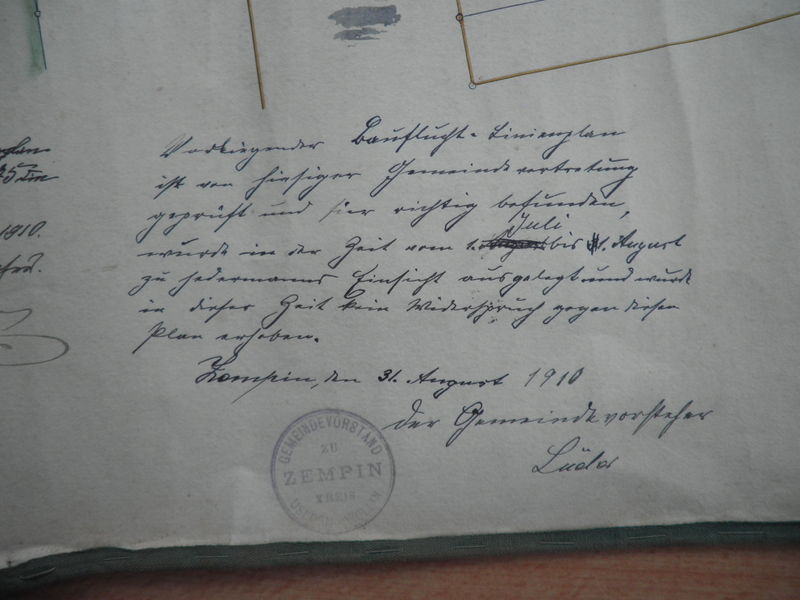 plan
1910.
Vorliegender Bauflucht-Linienplan
ist von hiesiger Gemeindevertretung
geprüft und für richtig befunden,
Juli
wurde in der Zeit vom 1. bis 1. August
zu jedermanns Einsicht ausgelegt und wurde
in dieser Zeit kein Widerspruch gegen diesen
Plan erhoben.
Zempin, den 31. August 1910
Der Gemeindevorsteher
GEMEINDEVORSTAND
ZU
ZEMPIN
KREIS
USEDOM-WOLLIN